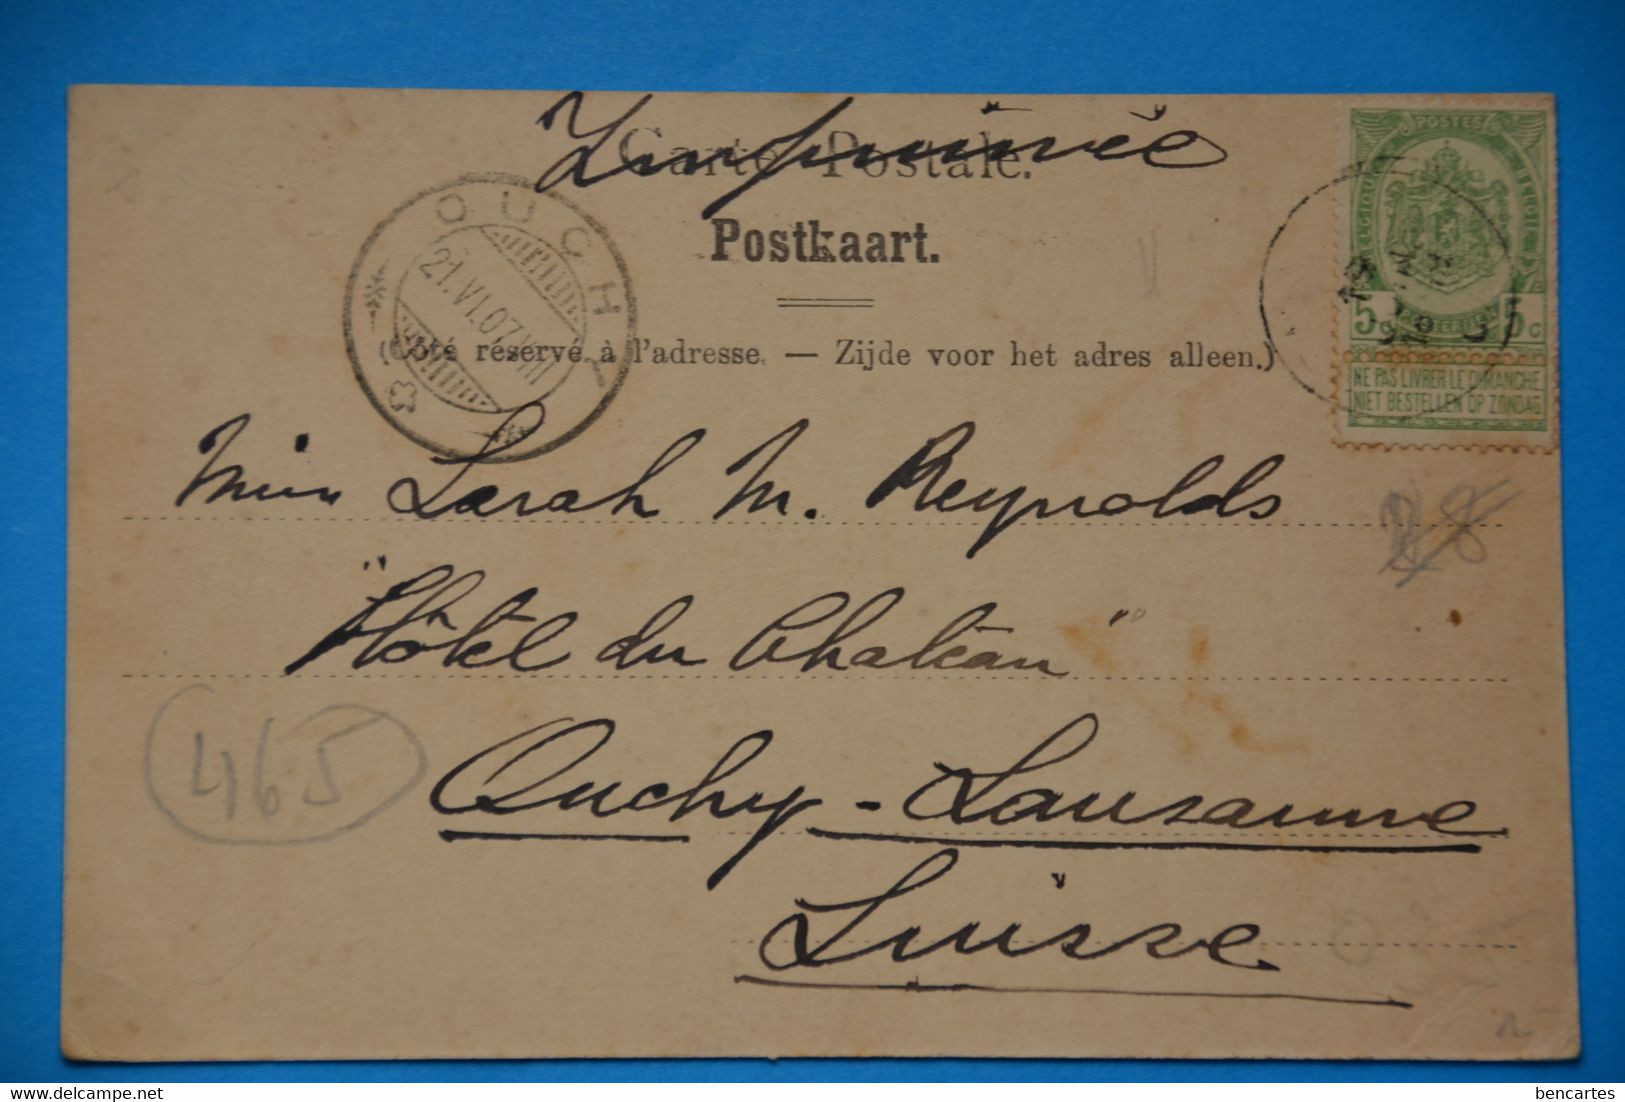 Imprimée
Carte Postale.
Postkaart.
(Côté réservé à l'adresse. — Zijde voor het adres alleen.)
OUCHY
21.VI.07
POSTES
5c 5c
NE PAS LIVRER LE DIMANCHE
NIET BESTELLEN OP ZONDAG
Miss Sarah M. Reynolds
"Hôtel du Château"
Ouchy-Lausanne
Suisse
465
delcampe.net
bencartes